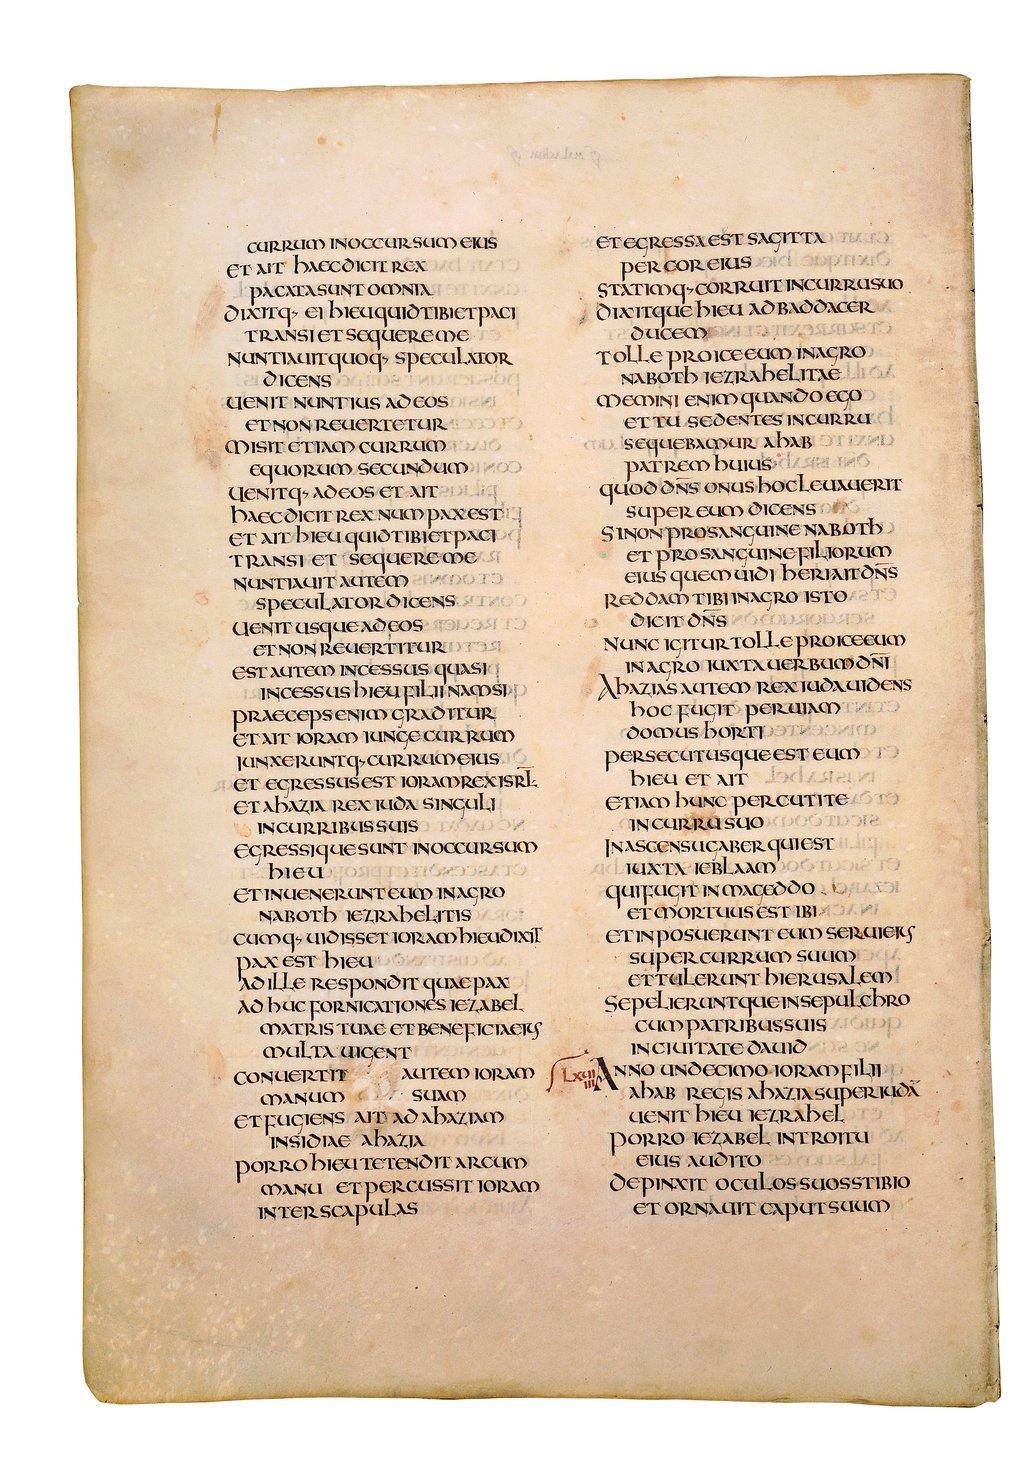 CURRUM IN OCCURSUM EIUS
ET AIT HAEC DICIT REX
PACATA SUNT OMNIA
DIXITQ, EI HIEU QUID TIBI ET PACI
TRANSI ET SEQUERE ME
NUNTIAUIT QUOQ, SPECULATOR
DICENS
UENIT NUNTIUS AD EOS
ET NON REUERTETUR
MISIT ETIAM CURRUM
EQUORUM SECUNDUM
UENITQ, AD EOS ET AIT
HAEC DICIT REX NUM PAX EST
ET AIT HIEU QUID TIBI ET PACI
TRANSI ET SEQUERE ME
NUNTIAUIT AUTEM
SPECULATOR DICENS
UENIT USQUE AD EOS
ET NON REUERTITUR
EST AUTEM INCESSUS QUASI
INCESSUS HIEU FILII NAMSI
PRAECEPS ENIM GRADITUR
ET AIT IORAM IUNGE CURRUM
IUNXERUNTQ, CURRUM EIUS
ET EGRESSUS EST IORAM REX ISRL̅
ET AHAZIA REX IUDA SINGULI
IN CURRIBUS SUIS
EGRESSIQUE SUNT IN OCCURSUM
HIEU
ET INUENERUNT EUM IN AGRO
NABOTH IEZRAHELITIS
CUMQ, UIDISSET IORAM HIEU DIXIT
PAX EST HIEU
AD ILLE RESPONDIT QUAE PAX
ADHUC FORNICATIONES IEZABEL
MATRIS TUAE ET BENEFICIA EIUS
MULTA UIGENT
CONUERTIT AUTEM IORAM
MANUM SUAM
ET FUGIENS AIT AD AHAZIAM
INSIDIAE AHAZIA
PORRO HIEU TETENDIT ARCUM
MANU ET PERCUSSIT IORAM
INTER SCAPULAS
ET EGRESSA EST SAGITTA
PER COR EIUS
STATIMQ, CORRUIT IN CURRU SUO
DIXITQUE HIEU AD BADDACER
DUCEM
TOLLE PROICE EUM IN AGRO
NABOTH IEZRAHELITAE
MEMINI ENIM QUANDO EGO
ET TU SEDENTES IN CURRU
SEQUEBAMUR AHAB
PATREM HUIUS
QUOD DN̅S ONUS HOC LEUAUERIT
SUPER EUM DICENS
SI NON PRO SANGUINE NABOTH
ET PRO SANGUINE FILIORUM
EIUS QUEM UIDI HERI AIT DN̅S
REDDAM TIBI IN AGRO ISTO
DICIT DN̅S
NUNC IGITUR TOLLE PROICE EUM
IN AGRO IUXTA UERBUM DN̅I
AHAZIAS AUTEM REX IUDA UIDENS
HOC FUGIT PER UIAM
DOMUS HORTI
PERSECUTUSQUE EST EUM
HIEU ET AIT
ETIAM HUNC PERCUTITE
IN CURRU SUO
IN ASCENSU GABER QUI EST
IUXTA IEBLAAM
QUI FUGIT IN MAGEDDO
ET MORTUUS EST IBI
ET INPOSUERUNT EUM SERUI EIUS
SUPER CURRUM SUUM
ET TULERUNT HIERUSALEM
SEPELIERUNTQUE IN SEPULCHRO
CUM PATRIBUS SUIS
IN CIUITATE DAUID
LXVII
III
ANNO UNDECIMO IORAM FILII
AHAB REGIS AHAZIA SUPER IUDA̅
UENIT HIEU IEZRAHEL
PORRO IEZABEL INTROITU
EIUS AUDITO
DEPINXIT OCULOS SUOS STIBIO
ET ORNAUIT CAPUT SUUM